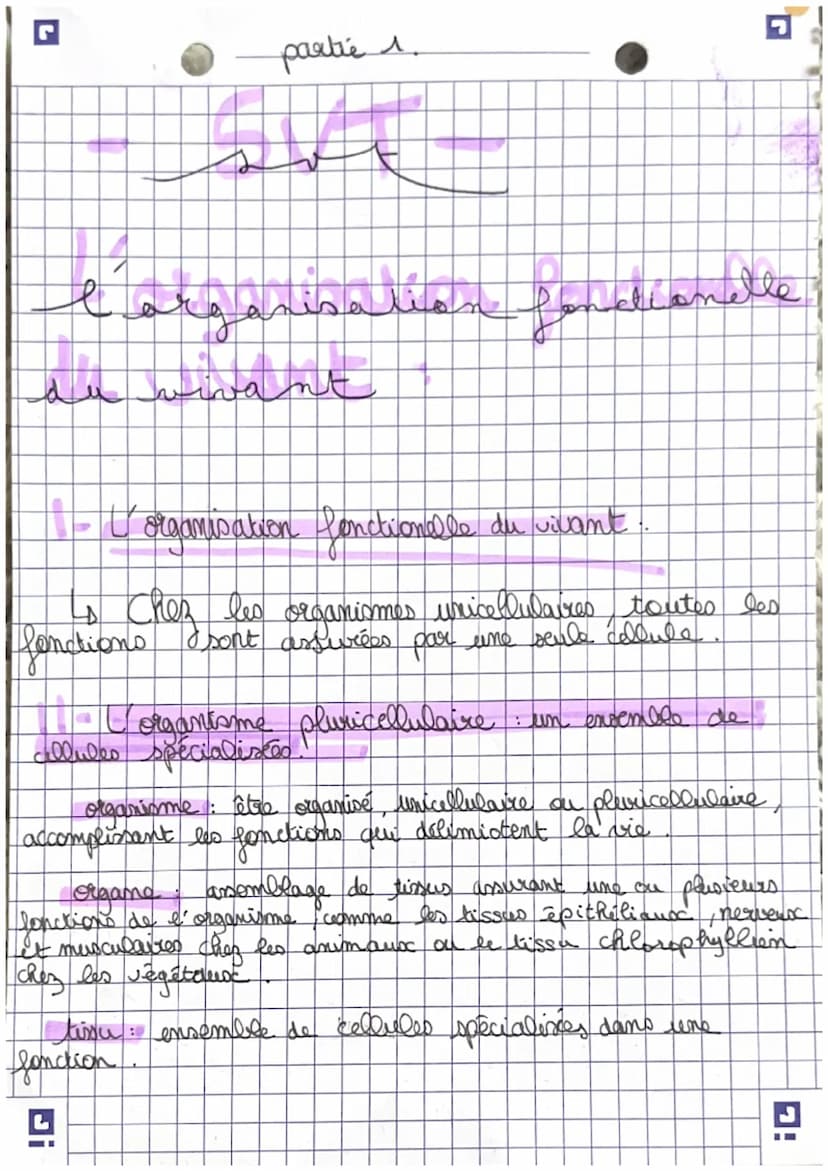 partie 1.
- SVT -
svt
L'organisation fonctionelle
du vivant :
I - L'organisation fonctionelle du vivant :
↳ Chez les organismes unicellulaires, toutes les
fonctions sont assurées par une seule cellule.
II - L'organisme pluricellulaire : un ensemble de
cellules spécialisées.
organisme : être organisé, unicellulaire ou pluricellulaire,
accomplissant les fonctions qui délimiotent la vie.
organe : assemblage de tissus assurant une ou plusieurs
fonctions de l'organisme, comme les tissus épithéliaux, nerveux
et musculaires chez les animaux ou le tissu chlorophyllien
chez les végétaux.
tissu : ensemble de cellules spécialisées dans une
fonction.